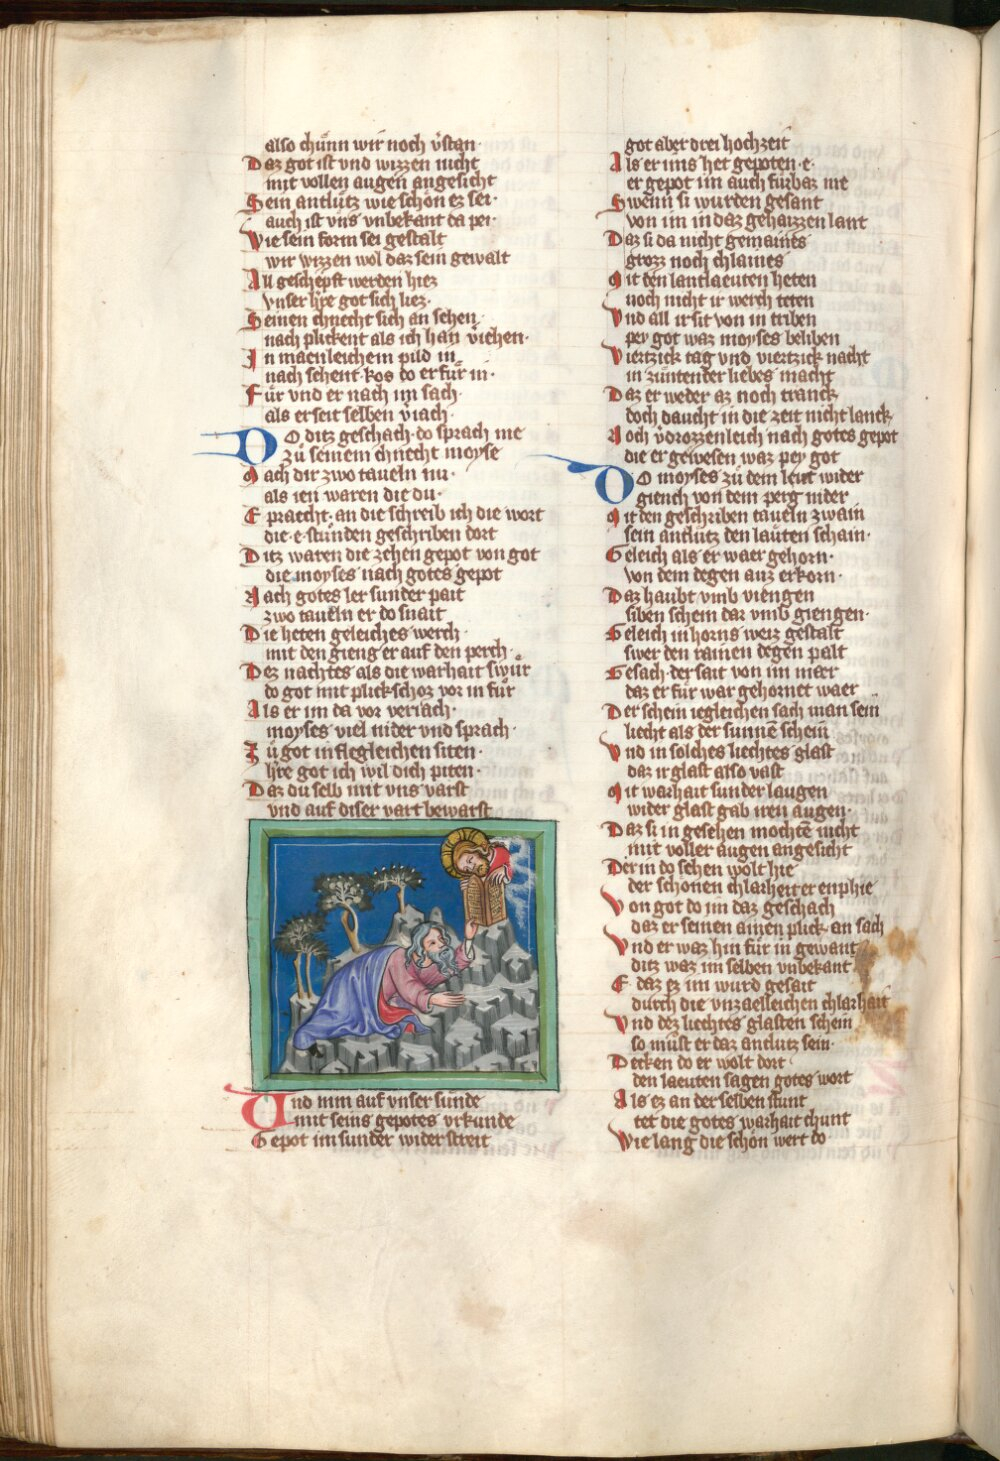 also chùnn wir noch v̾stan·
Daz got ist vnd wizzen nicht
mit vollen augen angesicht
Sein antlutz wie schön ez sei·
auch ist vns vnbekant da pei·
Wie sein form sei gestalt
wir wizzen wol daz sein gewalt
All geschepft werden hiez
vnser h̾re got sich liez·
Seinen chnecht sich an sehen
nach plickent als ich han v̾iehen·
In maenleichem pild in
nach sehent· kos do er fůr in·
Fůr vnd er nach im sach·
als er seit selben v̾iach·
DO ditz geschach· do sprach me
zů seinem chnecht moyse
Mach dir zwo taueln nu·
als ien waren die du·
Epraecht· an die schreib ich die wort
die· e· stunden geschriben dort
Ditz waren die zehen gepot von got
die moyses nach gotes gepot
Nach gotes ler sunder pait
zwo taueln er do snait
Die heten geleiches werch·
mit den gieng er auf den perch·
Dez nachtes als die warhait swůr
do got mit plickschoz vor in fůr
Als er im da vor veriach·
moyses viel nider vnd sprach·
Zů got in flegleichen siten·
h̾re got ich wil dich piten·
Daz du selb mit vns varst
vnd auf diser vart bewarst
Vnd nim auf vnser sunde
mit seins gepotes vrkunde
Gepot im sunder widerstreit
got aber drei hochzeit
Als er uns het gepoten· e·
er gepot im auch fůrbaz me
Swenn si wurden gesant
von im in daz gehaizzen lant
Daz si da nicht gemaines
grozz noch chlaines
Mit den lantlaeuten heten
noch nicht ir werch teten
Vnd all ir sit von in triben
pey got waz moyses beliben
Viertzick tag vnd viertzick nacht
in zůntender liebes macht
Daz er weder az noch tranck
doch daucht in die zeit nicht lanck
Noch v̾drozzenleich nach gotes gepot
die er gewesen waz pey got
DO moyses zů dem leut wider
giench von dem perg nider
Mit den geschriben taueln zwain
sein antlutz den lauten schain·
Geleich als er waer gehorn·
von dem degen auz erkorn·
Daz haubt vmb viengen
siben schem dar vmb giengen·
Geleich in horns weiz gestalt
swer den rainen degen palt
Gesach· der sait von im maer
daz er fůr war gehornet waer
Der schein iegleichen sach man sein
liecht als der sunnē schein
Vnd in solches liechtes glast
daz ir glast also vast
Mit warhait sunder laugen
wider glast gab iren augen·
Daz si in gesehen mochtē nicht
mit voller augen angesicht
Der in do sehen wolt hie
der schonen chlarheit er enphie
Von got do im daz geschach
daz er seinen ainen plick· an sach
Vnd er waz hin fůr in gewant
ditz waz im selben vnbekant
E· daz ez im wurd gesait
durch die vnzaelleichen chlarhait
Vnd dez liechtes glasten schein
so můst er daz antlutz sein·
Decken do er wolt dort
den laeuten sagen gotes wort
Als ez an der selben stunt
tet die gotes warhait chunt
Wie lang die schön wert do